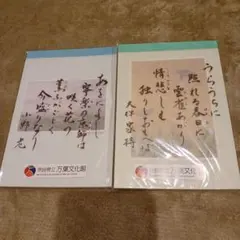 あをによし
寧楽の京師は
咲く花の
薫ふがごとく
今盛りなり
小野老
奈良県立万葉文化館
うらうらに
照れる春日に
雲雀あがり
情悲しも
独りしおもへば
大伴家持
奈良県立万葉文化館